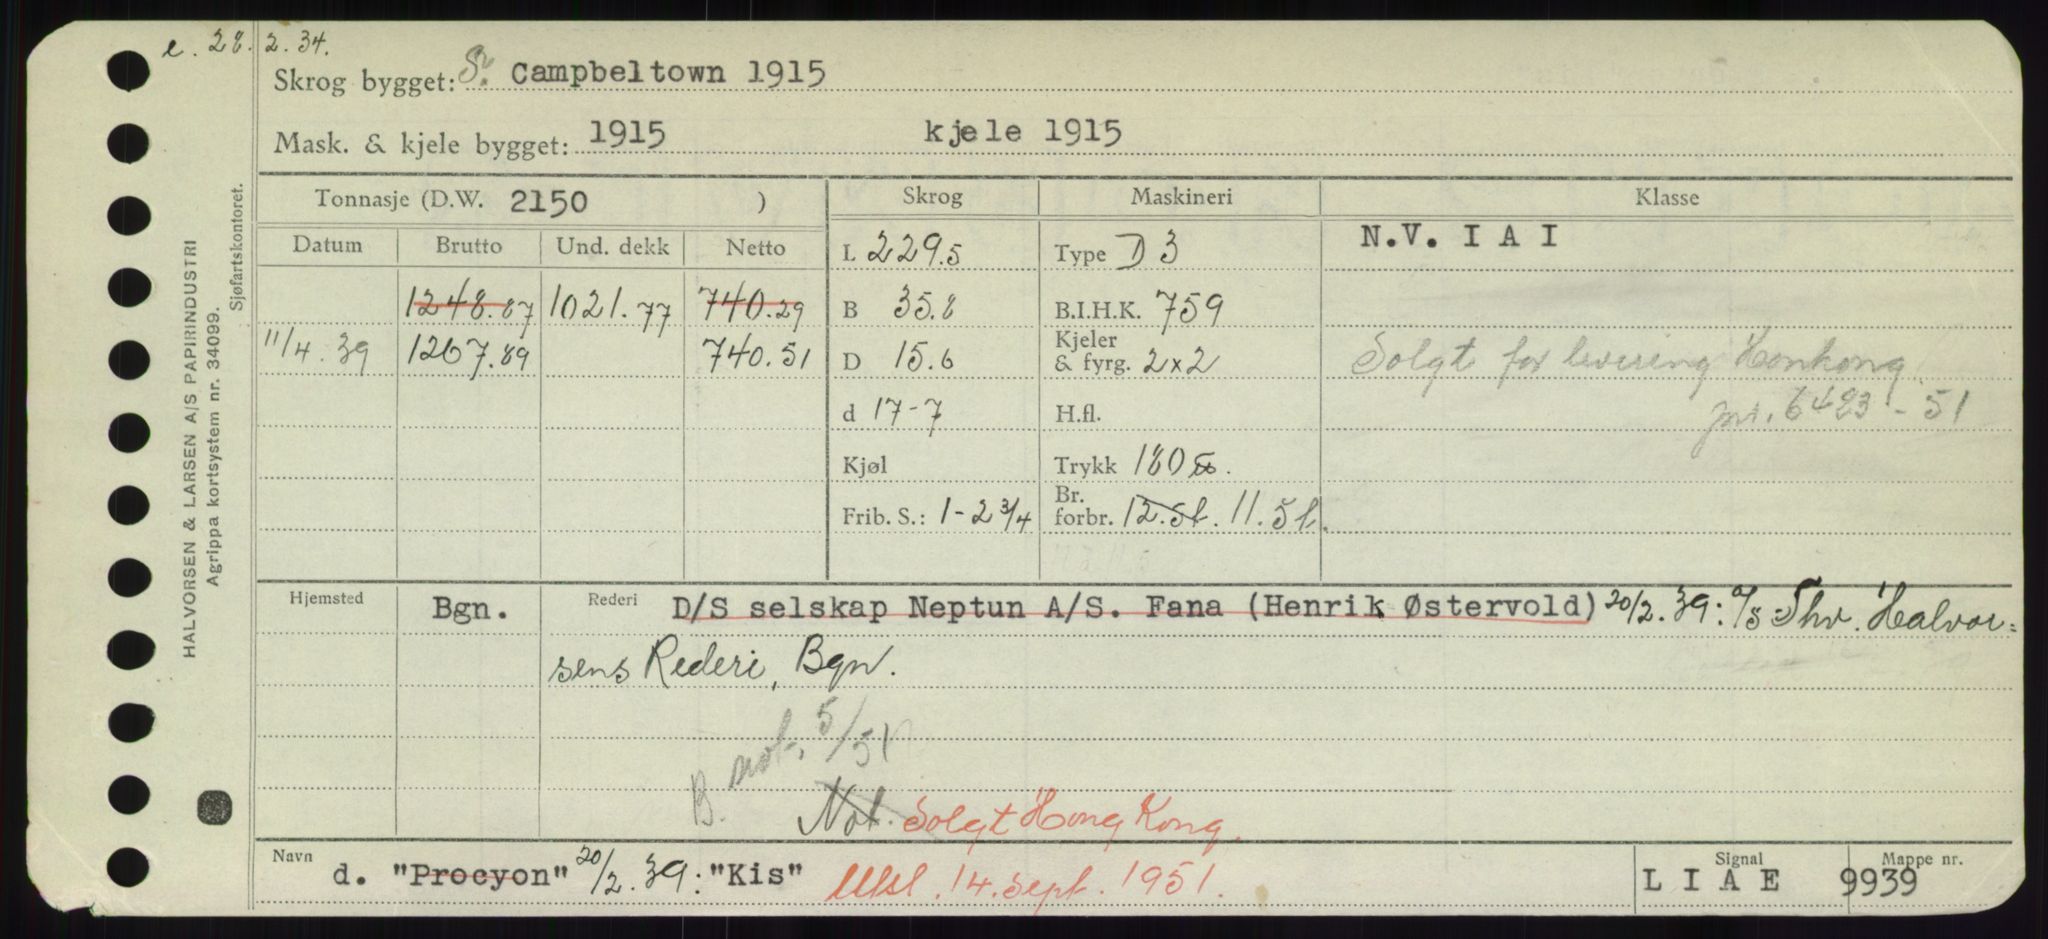 e. 28.2.34.
Skrog bygget: St. Campbeltown 1915
Mask. & kjele bygget: 1915 kjele 1915
Tonnasje (D.W. 2150 ) Skrog Maskineri Klasse
Datum Brutto Und. dekk Netto L 229.5 Type D 3 N.V. I A I
1248.87 1021.77 740.29 B 35.8 B.I.H.K. 759
11/4.39 1267.89 740.51 D 15.6 Kjeler & fyrg. 2x2 Solgt for levering Honkong.
d 17-7 H.fl. jnr. 6423-51
Kjøl Trykk 180
Frib. S.: 1-2 3/4 Br. forbr. 12.5t. 11.5t.
Hjemsted Bgn. Rederi D/S selskap Neptun A/S. Fana (Henrik Østervold) 20/2.39: A/S Thv. Halvor=
sens Rederi, Bgn.
B. not. 5/51
Not. Solgt Hong Kong.
Navn d. "Procyon" 20/2.39: "Kis" Utsl. 14. sept. 1951. Signal L I A E Mappe nr. 9939
HALVORSEN & LARSEN A/S PAPIRINDUSTRI
Agrippa kortsystem nr. 34099.
Sjøfartskontoret.